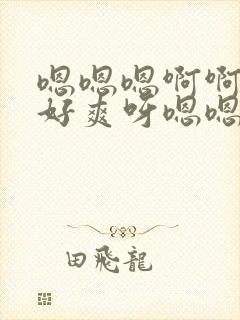 嗯嗯嗯啊啊
好爽呀嗯嗯
田飛龍